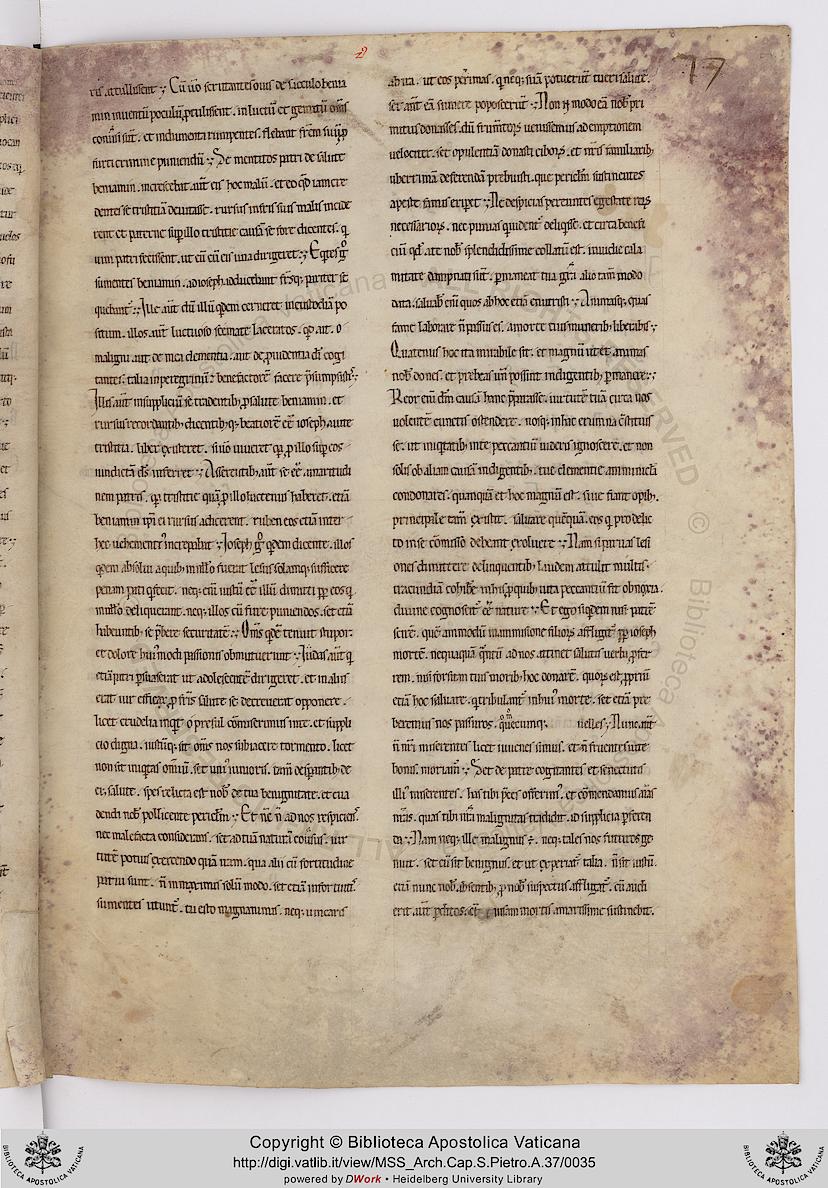 77
ris attulissent. Cū ū scrutantes onus de sacculo benia
min inuentū poculū ꝓtulissent. in luctū et gemitū om̄s
furti crimine puniendū. Se mentitos patri de salute
beniamin. increscebat aut̄ eis hoc malū. et eo qd̄ iam cre
dentes se tristitiā deuitasse. rursus in suis malis incide
rent et paterne sup illo tristitie causā se fore dicentes. q
uim patri fecissent. ut eū cū eis una dirigeret. Eqites g̊
sumentes beniamin. ad ioseph adducebant fr̄sq; pariter se
quebant̄. Ille aut̄ dū illū qdem cerneret in custodiā po
situm. illos aut̄ luctuoso scemate laceratos. qd ait. o
maligni aut de mea clementia. aut de ꝓuidentia di cogi
tantes. talia in peregrinū et benefactorē facere p̄sumpsistis.
Illis aut̄ in suppliciū se tradentib; ꝓ salute beniamin. et
rursus recordantib; dicentib;q; beatiorē eē ioseph aut̄e
tristitia. liber existeret. si uō uiueret
uindictā ds̄ inferret. Asserentib; aut̄ se eē amaritudi
nem patris. et tristitie quā ꝑ illo hactenus haberet. etiā
beniamin ip̄i ei rursus adicerent. ruben eos etiā inter
hec uehementi increpabat. Ioseph g̊ qdem dicente. illos
qdem absolui a quib; in nullo fuerat lesus solamq; sufficere
penam pati q fecit. neq; enī iustū eē illū dimitti ꝓpt eos q
in nullo deliquerant. neq; illos cū fure puniendos. set etiā
habeuntib; se p̄bere securitatē. Om̄s qdē tenuit stupor.
et dolore hui̾modi passionis obmutuerunt. Iudas aut̄ q
etiā patri ꝑsuaserat ut adolescentē dirigeret. et in aliis
erat uir efficax. ꝓ fr̄is salute se decreuerat opponere.
licet crudelia inqt o presul comiserimus in te. et suppli
cio digna. iustūq; sit om̄s nos subiacere tormento. licet
non sit iniqtas omniū. set uni̾ iunioris. tam̄ despantib; de
ei̾ salute. spes relicta est nob̄ de tua benignitate. et eua
dendi nob̄ pollicente periclm̄. Et nc̄ n̄ ad nos respiciens.
nec malefacta consideras. set ad tuā naturā cōuersus. uir
tutē potius exercendo quā iram. qua alii cū fortitudine
parui sunt. n̄ in maximis solū modo. set etiā in fortuitis
sumentes utunt̄. tu esto magnanimus. neq; uincaris
ab ira. ut eos perimas. q neq; suā potuerunt tueri salutē.
set aut̄ eā sumere poposcerunt. Non n̄ modo eā nob̄ pri
mitus donasses. dū frumentor̄ uenissemus ad emptionem
uelociter. set opulentiā donasti cibor̄. et nr̄is familiarib;
ubertimā deferendā prebuisti. que periclm̄ sustinentes
a peste famis eripet. Ne despicias pereuntes egestate reis
necessarior̄. nec punias quident̄ deliqsse. et circa benefi
ciū qd̄. a te nob̄ splendidissime collatū est. inuidie cala
mitate dampnati sūt. ꝑmaneat tua gr̄a alio tam̄ modo
data. saluab̄ enī quos ab hoc etiā enutristi. Animasq; quas
fame laborare n̄ passus es. a morte tuis munerib; liberabis.
Quatenus hoc ita mirabile sit. et magnū ut et animas
nob̄ dones. et prebeas un̄ possint indigentib; ꝑmanere.
Reor enī dm̄ causā hanc p̄parasse. uirtutē tuā circa nos
uolentē cunctis ostendere. nosq; in hac erumna cōstitui
se. ut iniqtatib; in te peccantiū uideris ignoscere. et non
solis ob aliam causā indigentib; tue clementie amminiclā
condonares. quanquā et hoc magnū est. siue fiant opib;.
principale tam̄ existit. saluare quēquā eos q pro delic
to in se cōmisso debeant exoluere. Nam si paruas lesi
ones dimittere delinquentib; laudem attulit multis.
iracundiā cohibē in his ꝑ quib; uita peccantiū fit obnoxia.
diuine cognoscit̄ eē nature. Et ego siqdem nisi patrē
scirē. quē ammodū in ammissione filior̄ affligit̄ ꝓpt̄ ioseph
mortē. nequaquā qntū ad nos attinet salutis uerba ꝓfer
rem. nisi forsitan tuis morib; hoc donarē. quor̄ est ꝓpriū
etiā hoc saluare. q tribulant̄ in hui̾ morte. set etiā pre
beremus nos passuros. quecumq; uelles. Nunc aut̄
n̄ nr̄i miserentes licet iuuenes simus. et n̄ fruentes uite
bonis. moriam̄. Set de patre cogitantes et senectutis
illi̾ miserentes. has tibi p̄ces offerim̾. et cōmendamus aīas
nr̄as. quas tibi nr̄a malignitas tradidit. ad supplicia ꝓferen
da. Nam neq; ille malignus ÷. neq; tales nos futuros ge
nuit. set cū sit benignus et ut experiat̄ talia. n̄ sit iustū.
etiā nunc nob̄ absentib; ꝓ nob̄ suspectus affligit̄. cū audi
erit aut̄ ꝑditos. et causam mortis amarissime sustinebit.
Copyright © Biblioteca Apostolica Vaticana
http://digi.vatlib.it/view/MSS_Arch.Cap.S.Pietro.A.37/0035
powered by DWork • Heidelberg University Library
BIBLIOTECA APOSTOLICA VATICANA
BIBLIOTECA APOSTOLICA VATICANA